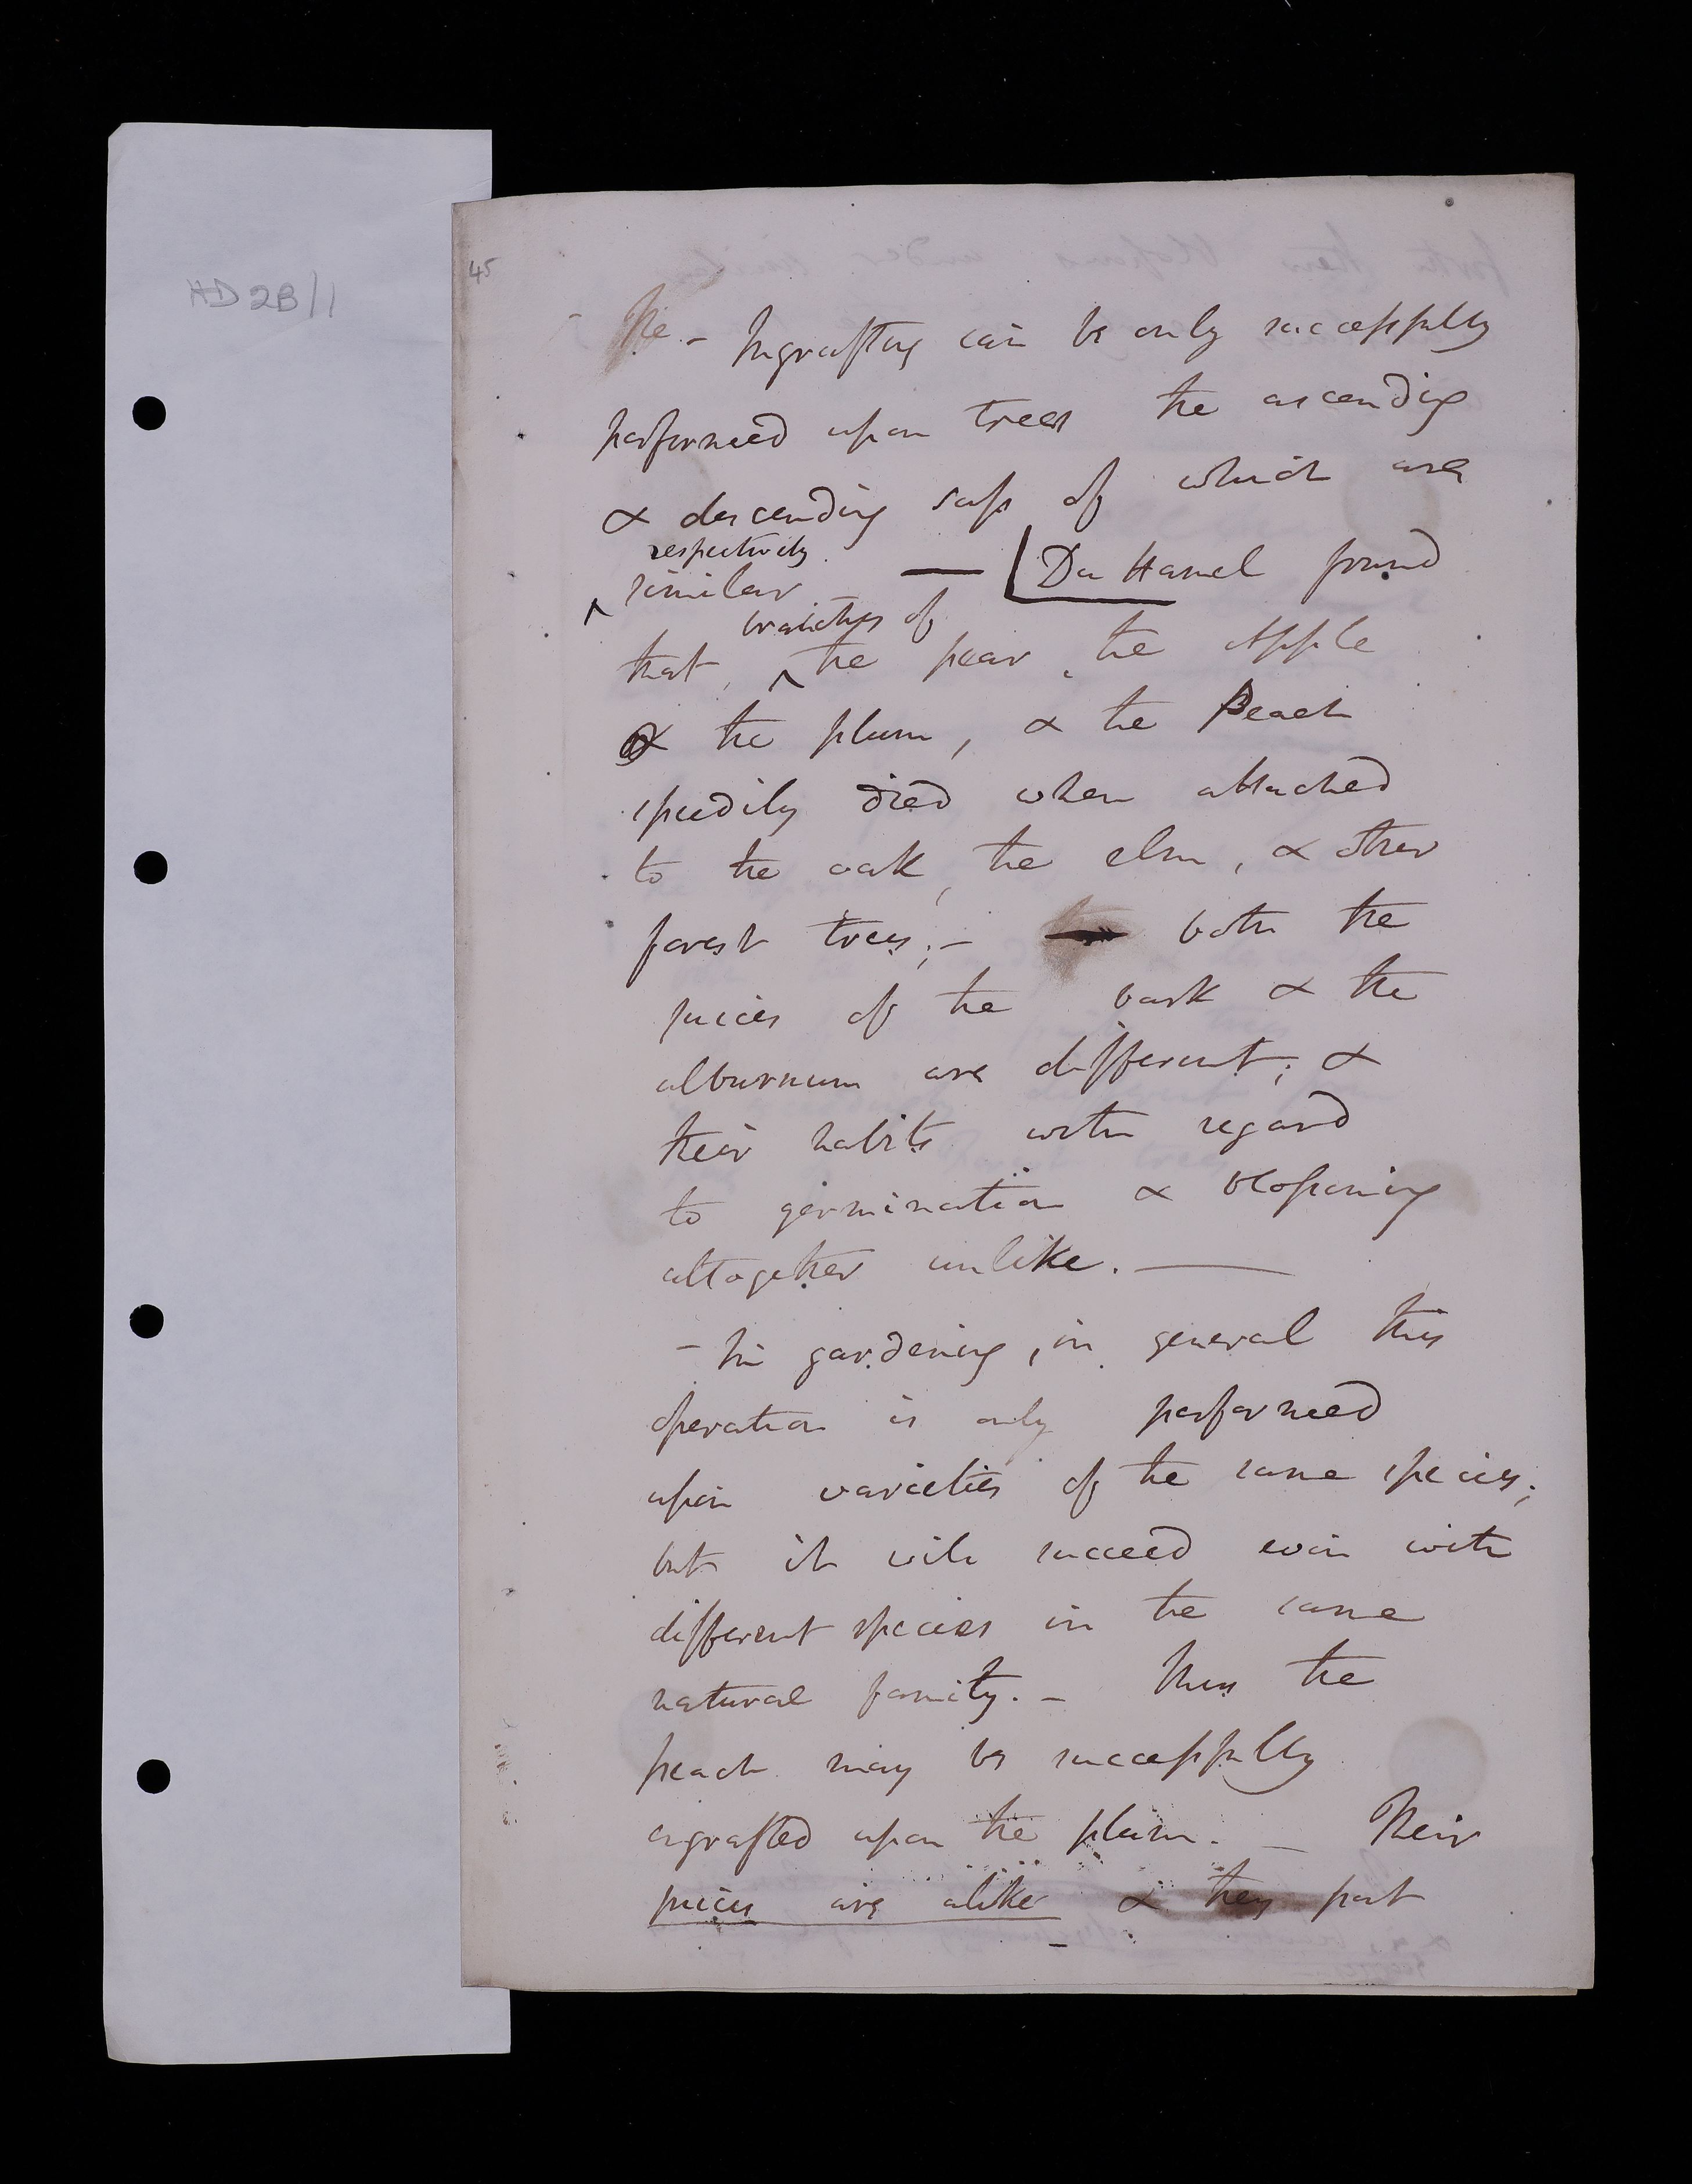 HD 2B/1
45
The - Ingrafting can be only successfully
performed upon trees the ascending
& descending sap of which are
respectively
^ similar — Du Hamel found
branches of
that, ^ the pear, the Apple
& the plum, & the Peach
speedily died when attached
to the oak, the elm, & other
forest trees; - both the
juices of the bark & the
alburnum are different; &
their habits with regard
to germination & blossoming
altogether unlike. —
- In gardening, in general this
operation is only performed
upon varieties of the same species;
but it will succeed even with
different species in the same
natural family. - Thus the
peach may be successfully
engrafted upon the plum. - Their
juices are alike & they put